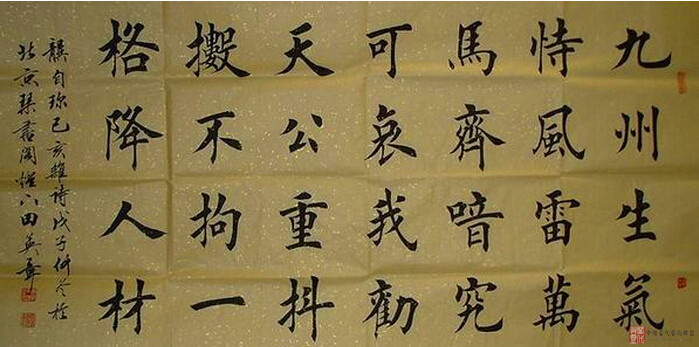 九州生氣
恃風雷萬
馬齊喑究
可哀我勸
天公重抖
擻不拘一
格降人材
龔自珍己亥雜詩戊子仲冬於
北京琴書閣田英章